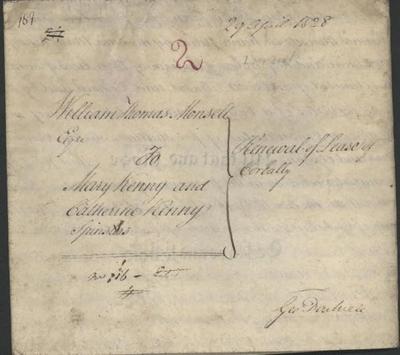 29 April 1828
2
William Thomas Monsell
Esqre
To
Mary Kenny and
Catherine Kenny
Spinsters
Renewal of Lease of
Corbally
No 716
Geo